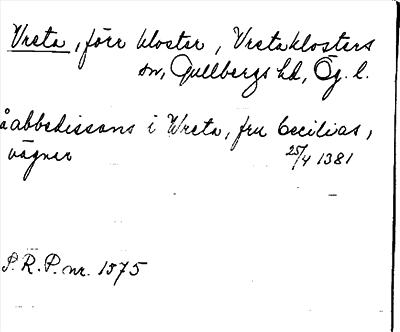 Vreta, förr kloster, Vretaklosters
sn, Gullbergs hd, Ög. l.
å abbedissans i Wreta, fru Cecilias,
vägnar 25/4 1381
S.R.P. nr. 1575